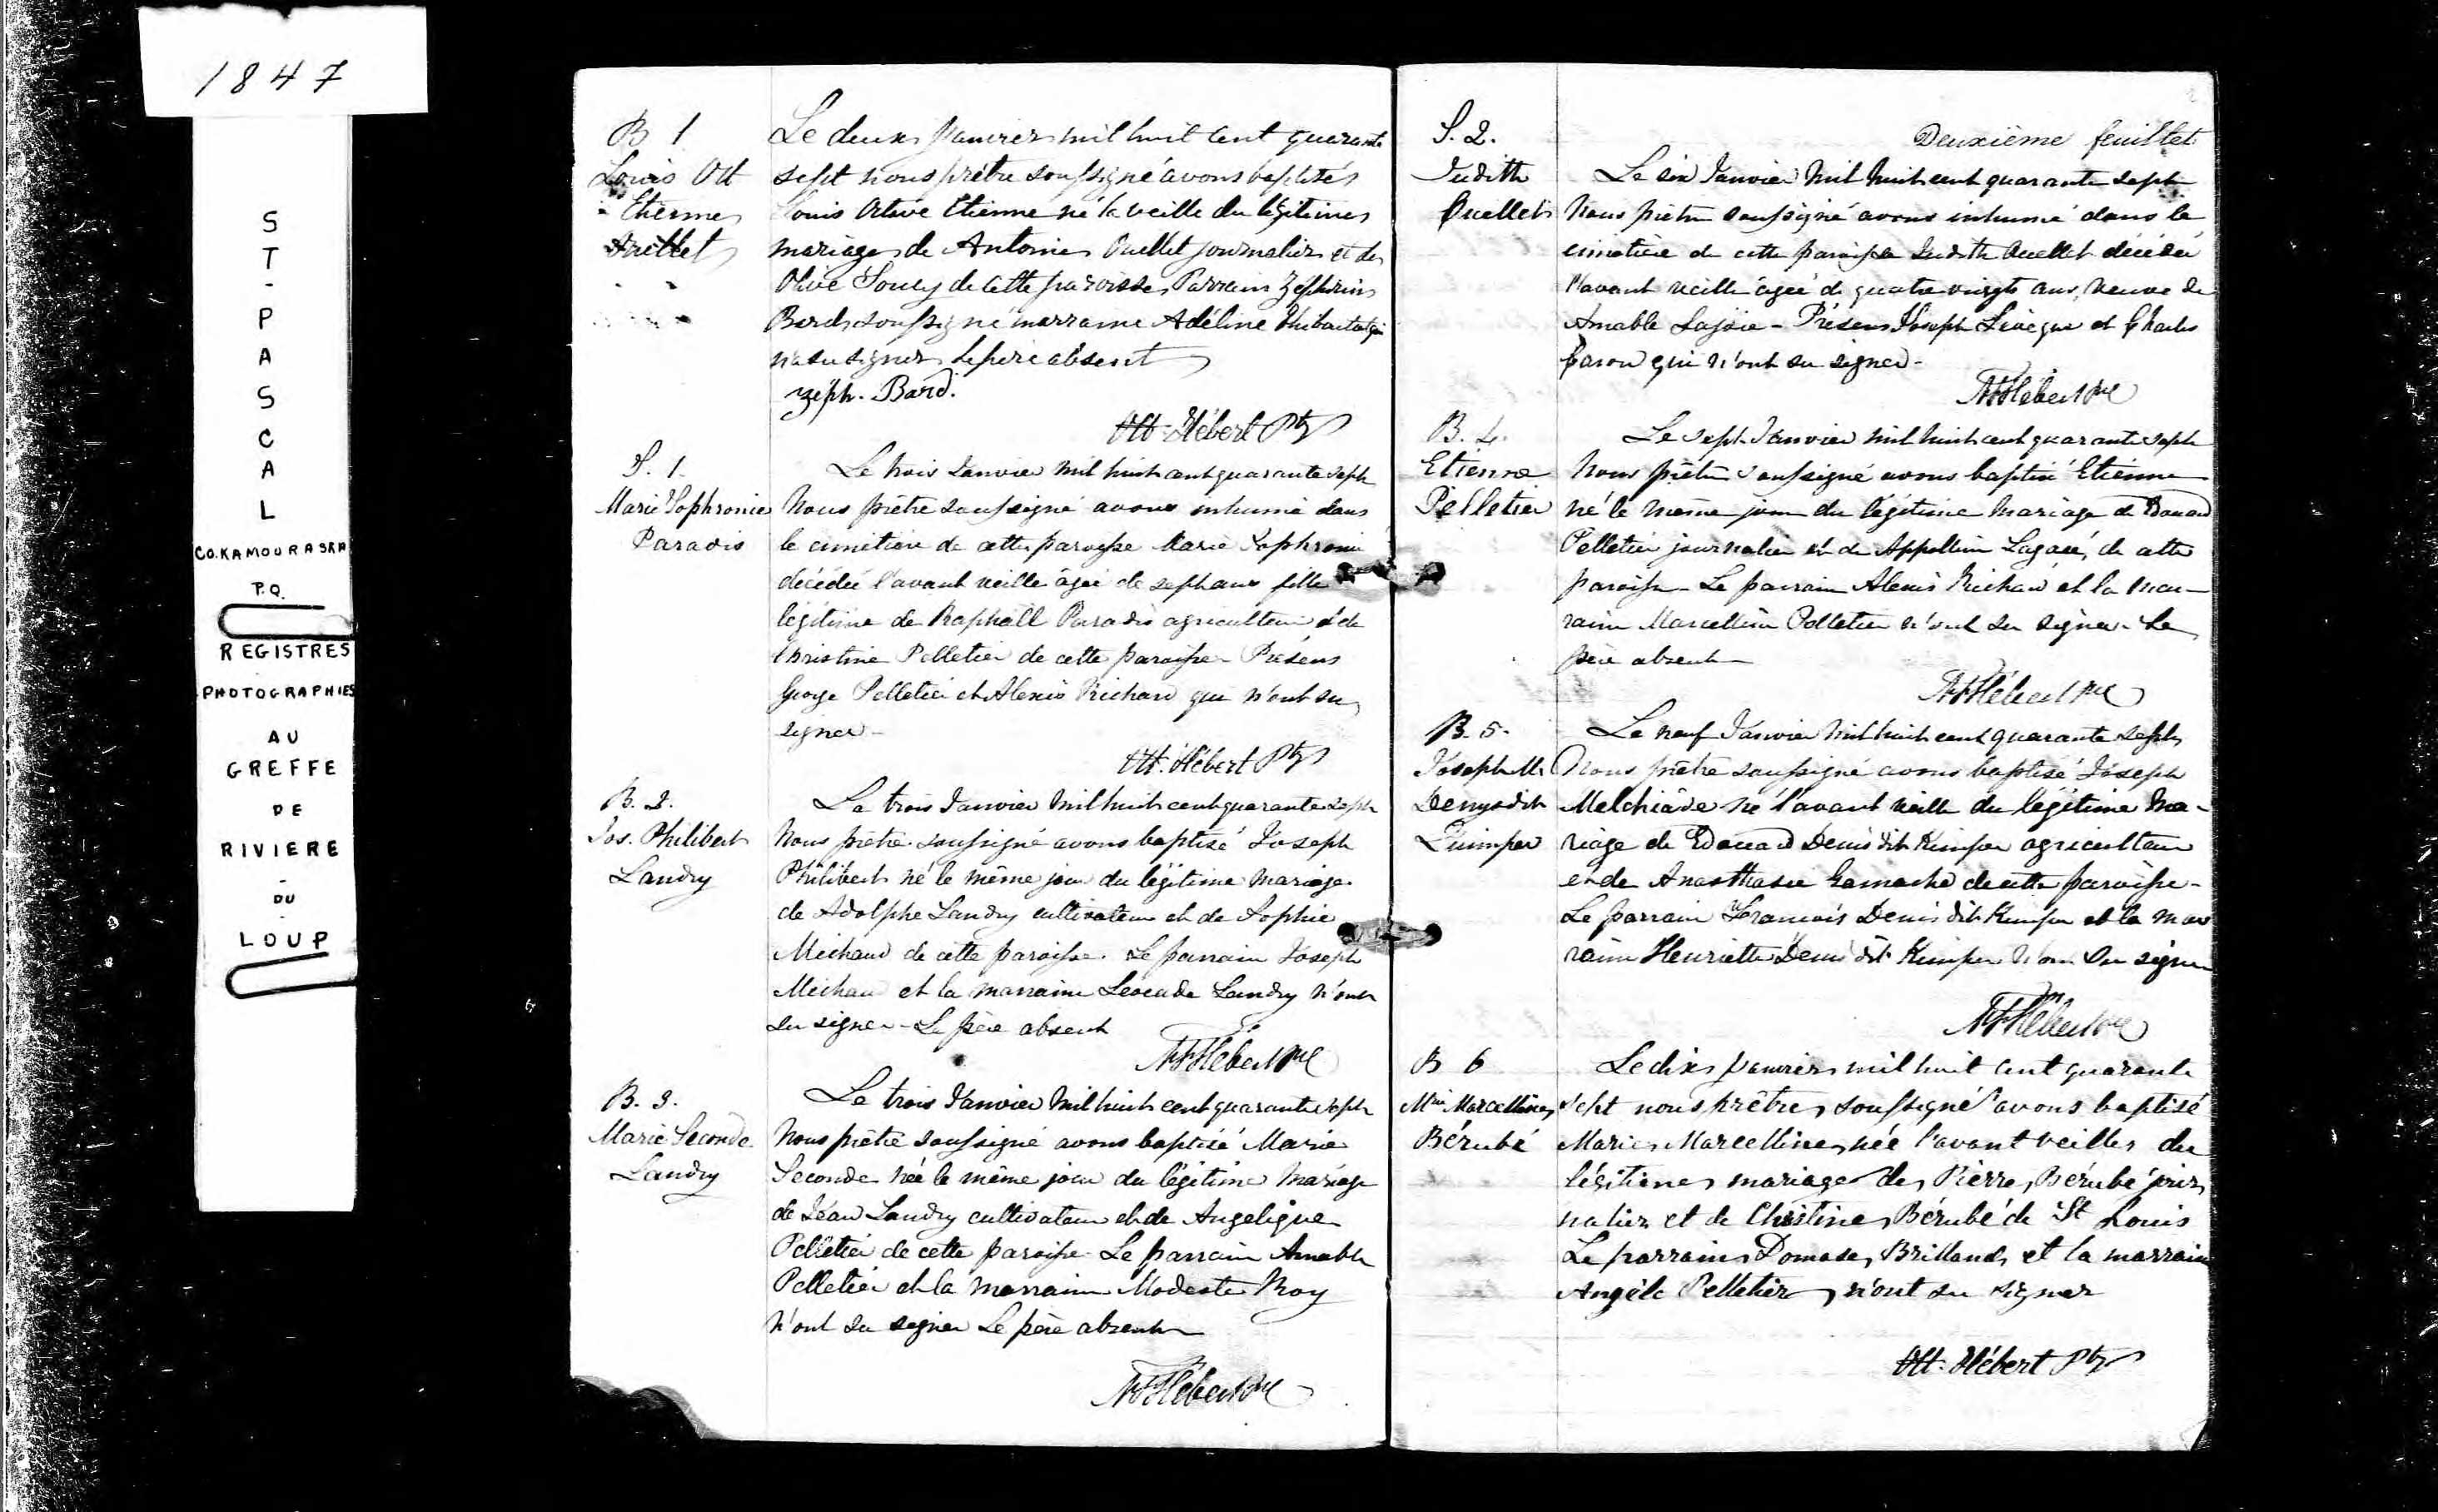 1847
ST-PASCAL
CO. KAMOURASKA
P.Q.
REGISTRES
PHOTOGRAPHIES
AU
GREFFE
DE
RIVIERE
-
DU
LOUP
B 1
Louis Ott
Etienne
Ouellet
Le deux janvier mil huit cent quarante
sept nous prêtre soussigné avons baptisé
Louis Octave Etienne né la veille du légitime
mariage de Antoine Ouellet journalier et de
Olive Soucy de cette paroisse Parrain Zéphirin
Bard soussigné marraine Adéline Thibault qui
n'a su signer le père absent
Zéph. Bard.
Hébert Ptr
S. 1.
Marie Sophronie
Paradis
Le trois Janvier mil huit cent quarante sept
Nous prêtre soussigné avons inhumé dans
le cimetière de cette paroisse Marie Sophronie
décédée l'avant veille âgée de sept ans fille
légitime de Raphaël Paradis agriculteur & de
Christine Pelletier de cette paroisse - Présens
George Pelletier et Alexis Richard qui n'ont su
signer -
Hébert Ptr
B. 2.
Jos. Philibert
Landry
Le trois Janvier mil huit cent quarante sept
Nous prêtre soussigné avons baptisé Joseph
Philibert né le même jour du légitime mariage
de Adolphe Landry cultivateur et de Sophie
Michaud de cette paroisse. Le parrain Joseph
Michaud et la marraine Leocade Landry n'ont
su signer - Le père absent
Hébert Ptre
B. 3.
Marie Seconde
Landry
Le trois Janvier mil huit cent quarante sept
Nous prêtre soussigné avons baptisé Marie
Seconde née le même jour du légitime mariage
de Jean Landry cultivateur et de Angelique
Pelletier de cette paroisse Le parrain Amable
Pelletier et la marraine Modeste Roy
n'ont su signer Le père absent
Hébert Ptre
Deuxième feuillet
S. 2.
Judith
Ouellet
Le six Janvier mil huit cent quarante sept
Nous prêtre soussigné avons inhumé dans le
cimetière de cette paroisse Judith Ouellet décédée
l'avant veille âgée de quatre vingts ans, veuve de
Amable Lajoie - Présens Joseph Lévêque et Charles
Caron qui n'ont su signer -
Hébert Ptre
B. 4.
Etienne
Pelletier
Le sept Janvier mil huit cent quarante sept
Nous prêtre soussigné avons baptisé Etienne
né le même jour du légitime mariage de Edouard
Pelletier journalier et de Appolline Lagacé, de cette
paroisse - Le parrain Alexis Richard et la mar-
raine Marcelline Pelletier n'ont su signer - Le
père absent
Hébert Ptre
B. 5.
Joseph M.
Denys dit
Quimper
Le neuf Janvier mil huit cent quarante sept
Nous prêtre soussigné avons baptisé Joseph
Melchiade né l'avant veille du légitime ma-
riage de Edouard Denis dit Kimper agriculteur
et de Anasthasie Gamache de cette paroisse -
Le parrain François Denis dit Kimper et la mar
raine Henriette Denis dit Kimper n'ont su signer
Hébert Ptre
B 6
Mie Marcelline
Bérubé
Le dix janvier mil huit cent quarante
sept nous prêtre soussigné avons baptisé
Marie Marcelline née l'avant veille du
légitime mariage de Pierre Bérubé jour
nalier et de Christine Bérubé de St Louis
Le parrain Domase Brilland et la marraine
Angèle Pelletier n'ont su signer
Hébert Ptr